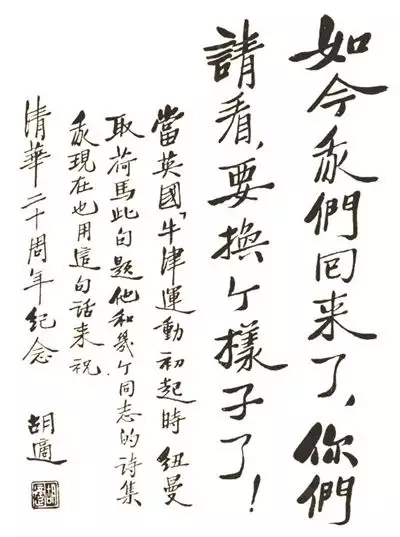 如今我們回来了，你們
請看，要換个樣子了！
當英國「牛津運動初起時 紐曼
取荷馬此句題他和幾个同志的詩集
我現在也用這句話来祝
清華二十周年紀念
胡適